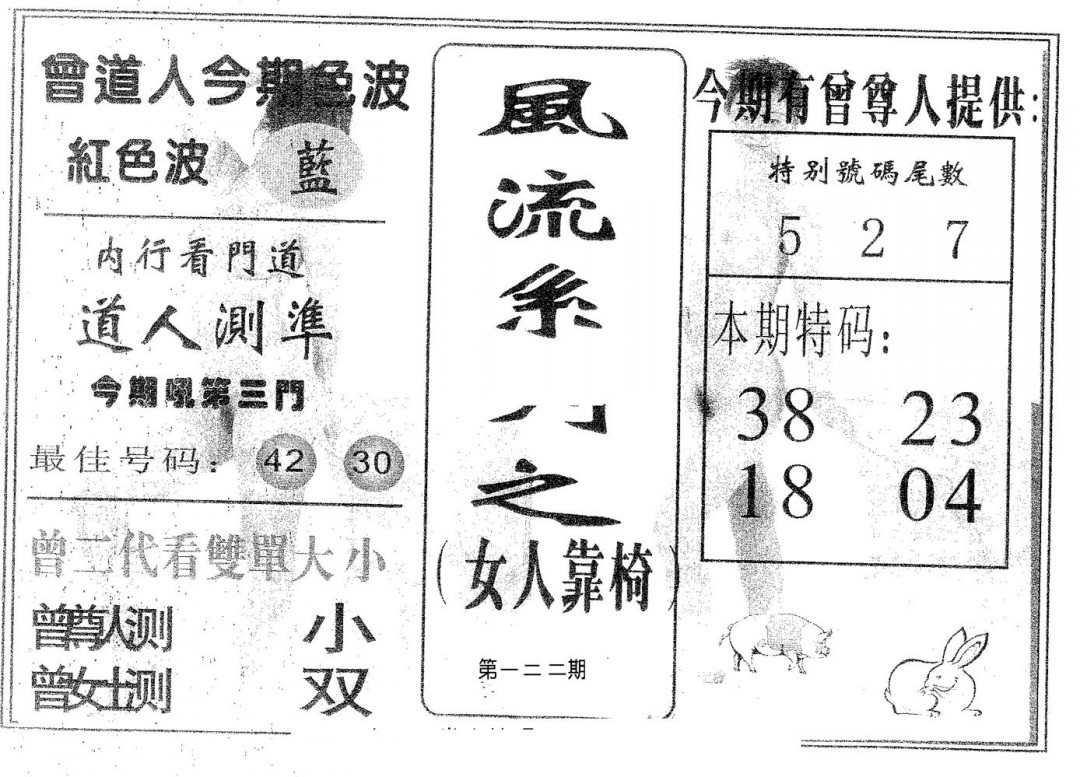 曾道人今期色波
紅色波
藍
内行看門道
道人測準
今期吼第三門
最佳号码：
42
30
曾二代看雙單大小
曾尊人测 小
曾女士测 双
風
流
系
之
（女人靠椅）
第一二二期
今期有曾尊人提供:
特别號碼尾數
5 2 7
本期特码:
38 23
18 04